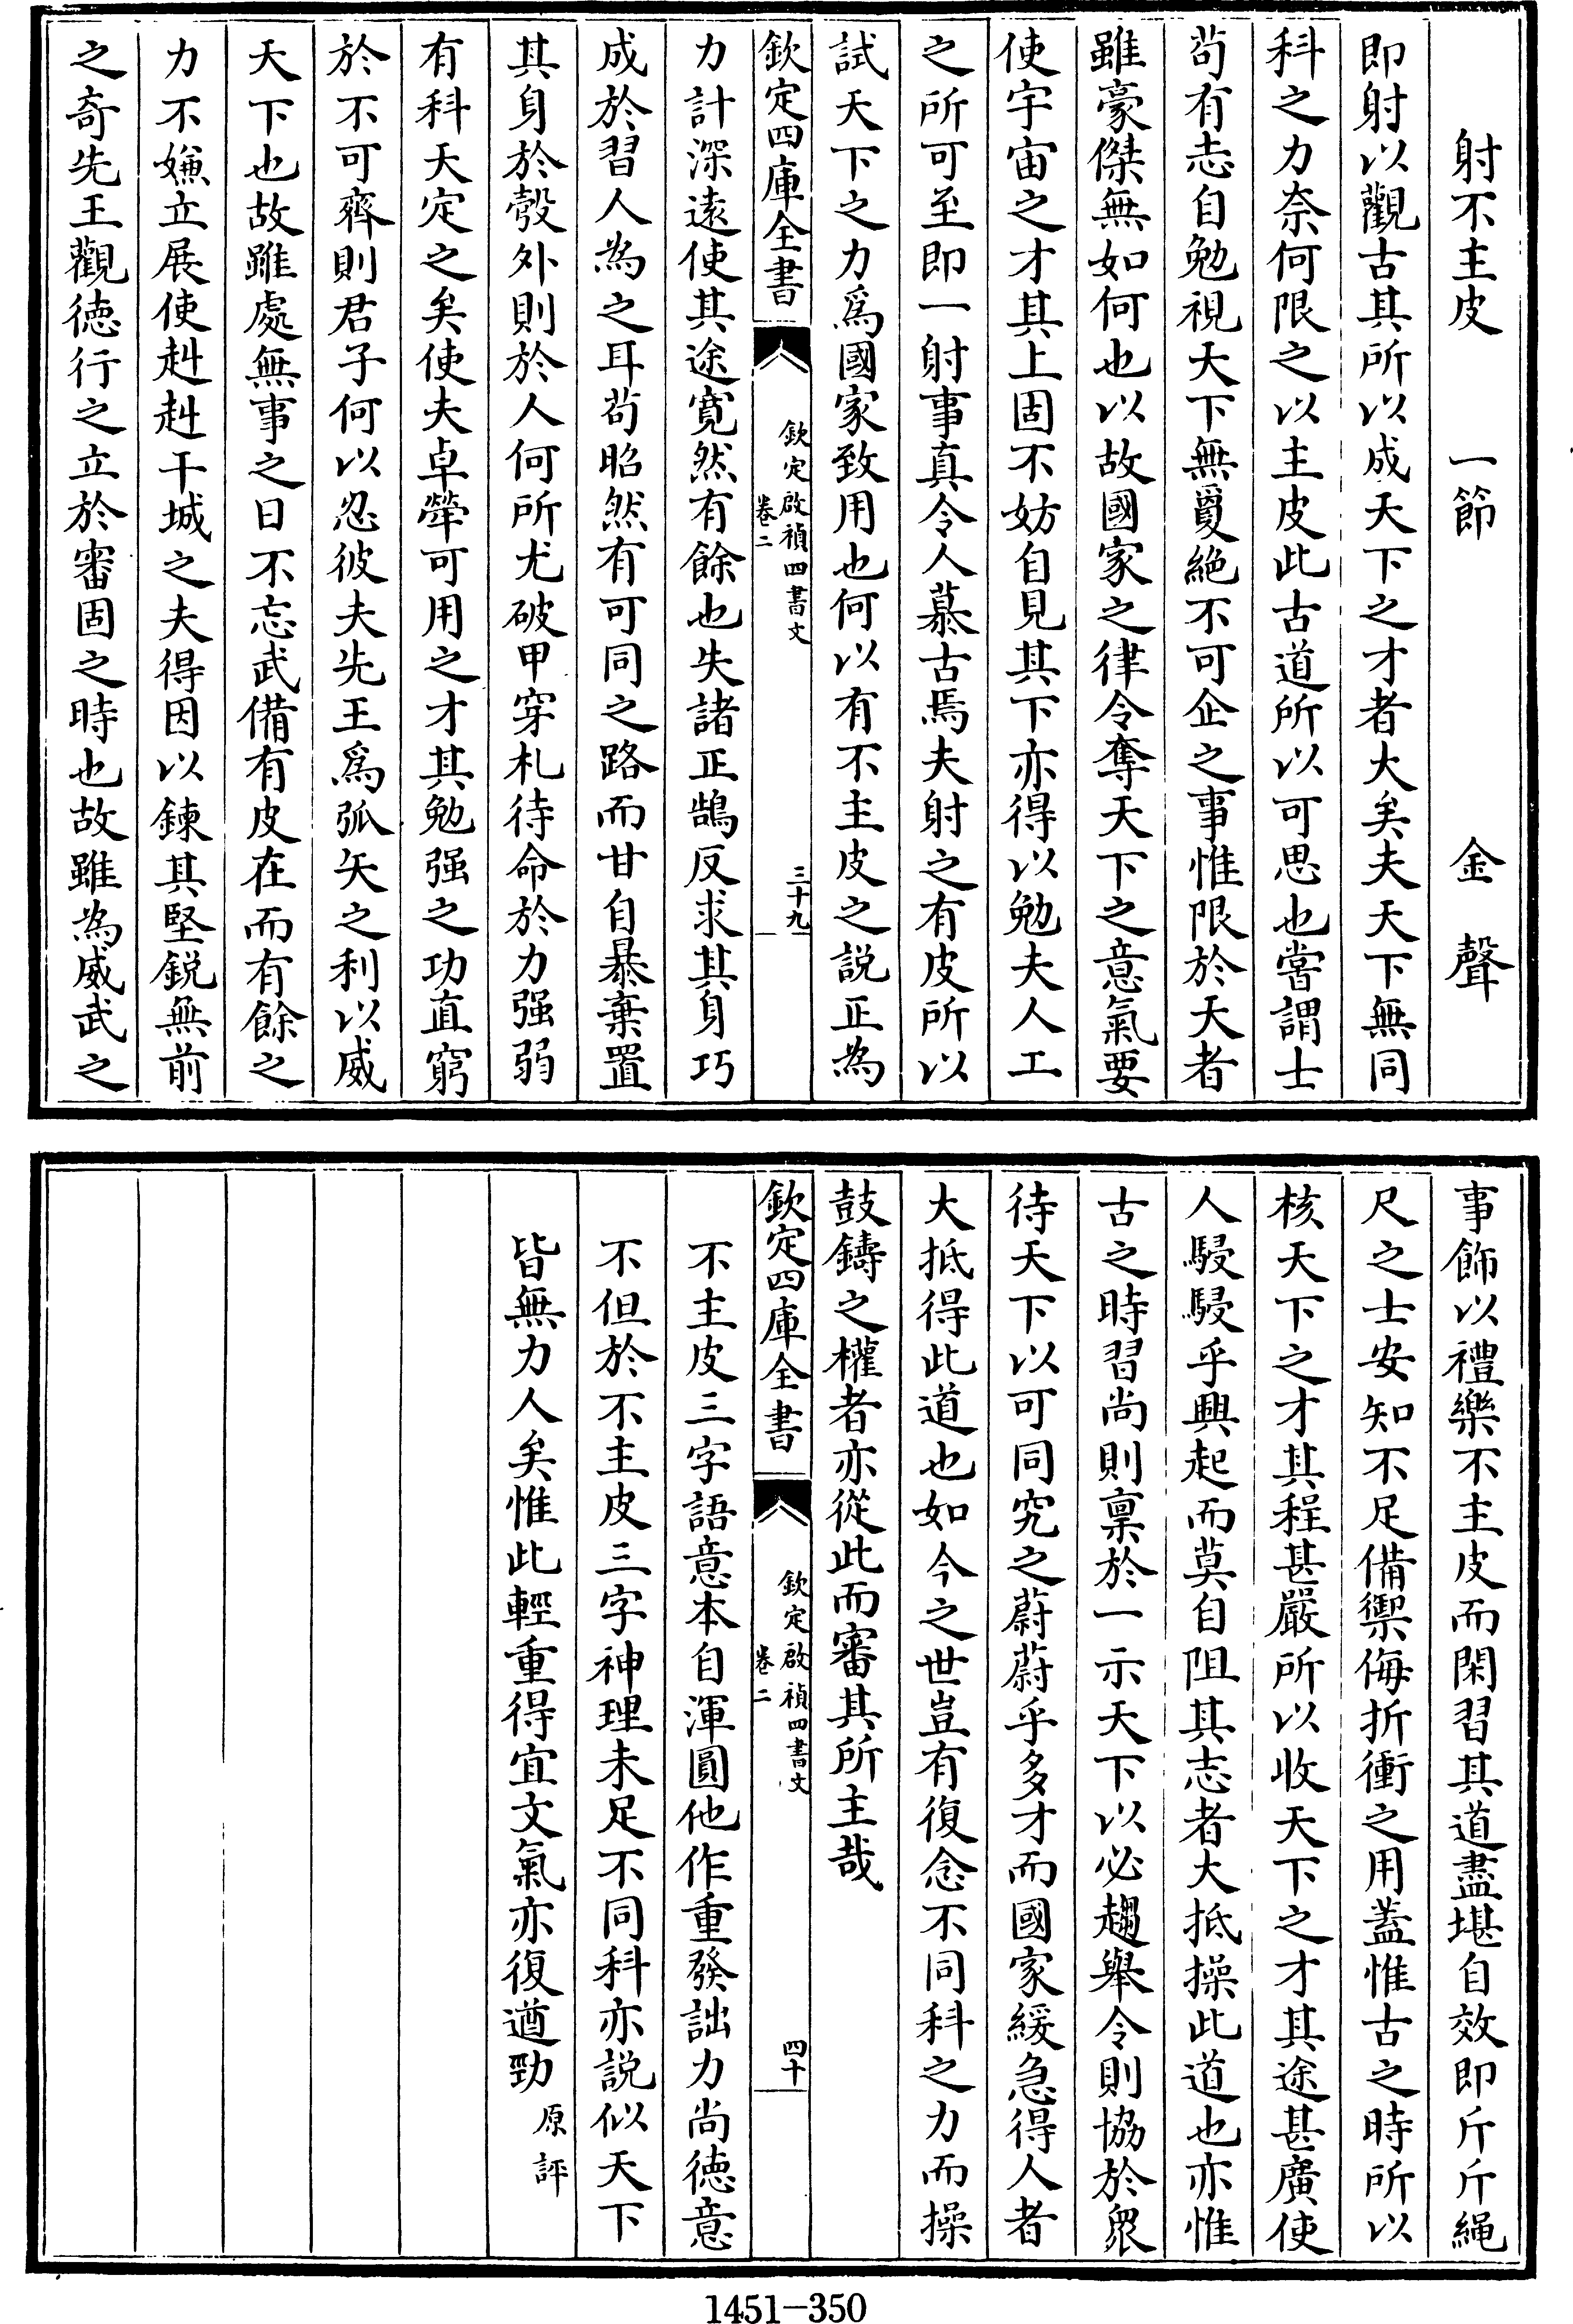 射不主皮　一節　金聲
即射以觀古其所以成天下之才者大矣夫天下無同
科之力奈何限之以主皮此古道所以可思也嘗謂士
苟有志自勉視天下無敻絶不可企之事惟限於天者
雖豪傑無如何也以故國家之律令奪天下之意氣要
使宇宙之才其上固不妨自見其下亦得以勉夫人工
之所可至即一射事真令人慕古焉夫射之有皮所以
試天下之力爲國家致用也何以有不主皮之説正為
欽定四庫全書
欽定啟禎四書文
卷二
三十九
力計深遠使其途寛然有餘也失諸正鵠反求其身巧
成於習人為之耳苟昭然有可同之路而甘自暴棄置
其身於彀外則於人何所尤破甲穿札待命於力强弱
有科天定之矣使夫卓犖可用之才其勉强之功直窮
於不可齊則君子何以忍彼夫先王爲弧矢之利以威
天下也故雖處無事之日不忘武備有皮在而有餘之
力不嫌立展使赳赳干城之夫得因以鍊其堅鋭無前
之奇先王觀徳行之立於審固之時也故雖為威武之
事飾以禮樂不主皮而閑習其道盡堪自效即斤斤繩
尺之士安知不足備禦侮折衝之用蓋惟古之時所以
核天下之才其程甚嚴所以收天下之才其途甚廣使
人駸駸乎興起而莫自阻其志者大抵操此道也亦惟
古之時習尚則禀於一示天下以必趨舉令則協於衆
待天下以可同究之蔚蔚乎多才而國家緩急得人者
大抵得此道也如今之世豈有復念不同科之力而操
鼓鑄之權者亦從此而審其所主哉
欽定四庫全書
欽定啟禎四書文
卷二
四十
不主皮三字語意本自渾圓他作重發詘力尚徳意
不但於不主皮三字神理未足不同科亦説似天下
皆無力人矣惟此輕重得宜文氣亦復遒勁原評
1451-350